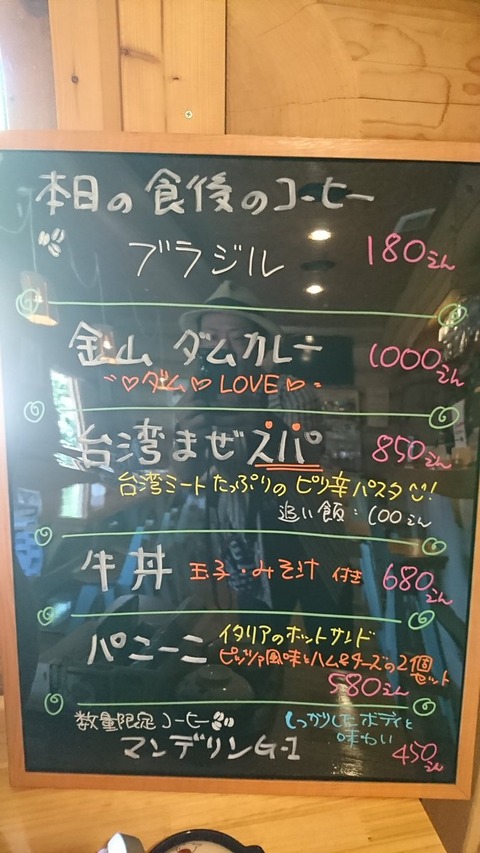 本日の食後のコーヒー
ブラジル 180えん
金山 ダムカレー 1000えん
♡ダム♡LOVE♡
台湾まぜスパ 850えん
台湾ミートたっぷりのピリ辛パスタ!
追い飯:100えん
牛丼 玉子・みそ汁 付き 680えん
パニーニ イタリアのホットサンド
ピッツァ風味とハム&チーズの2個セット
580えん
数量限定コーヒー しっかりしたボディと味わい
マンデリンG-1 450えん